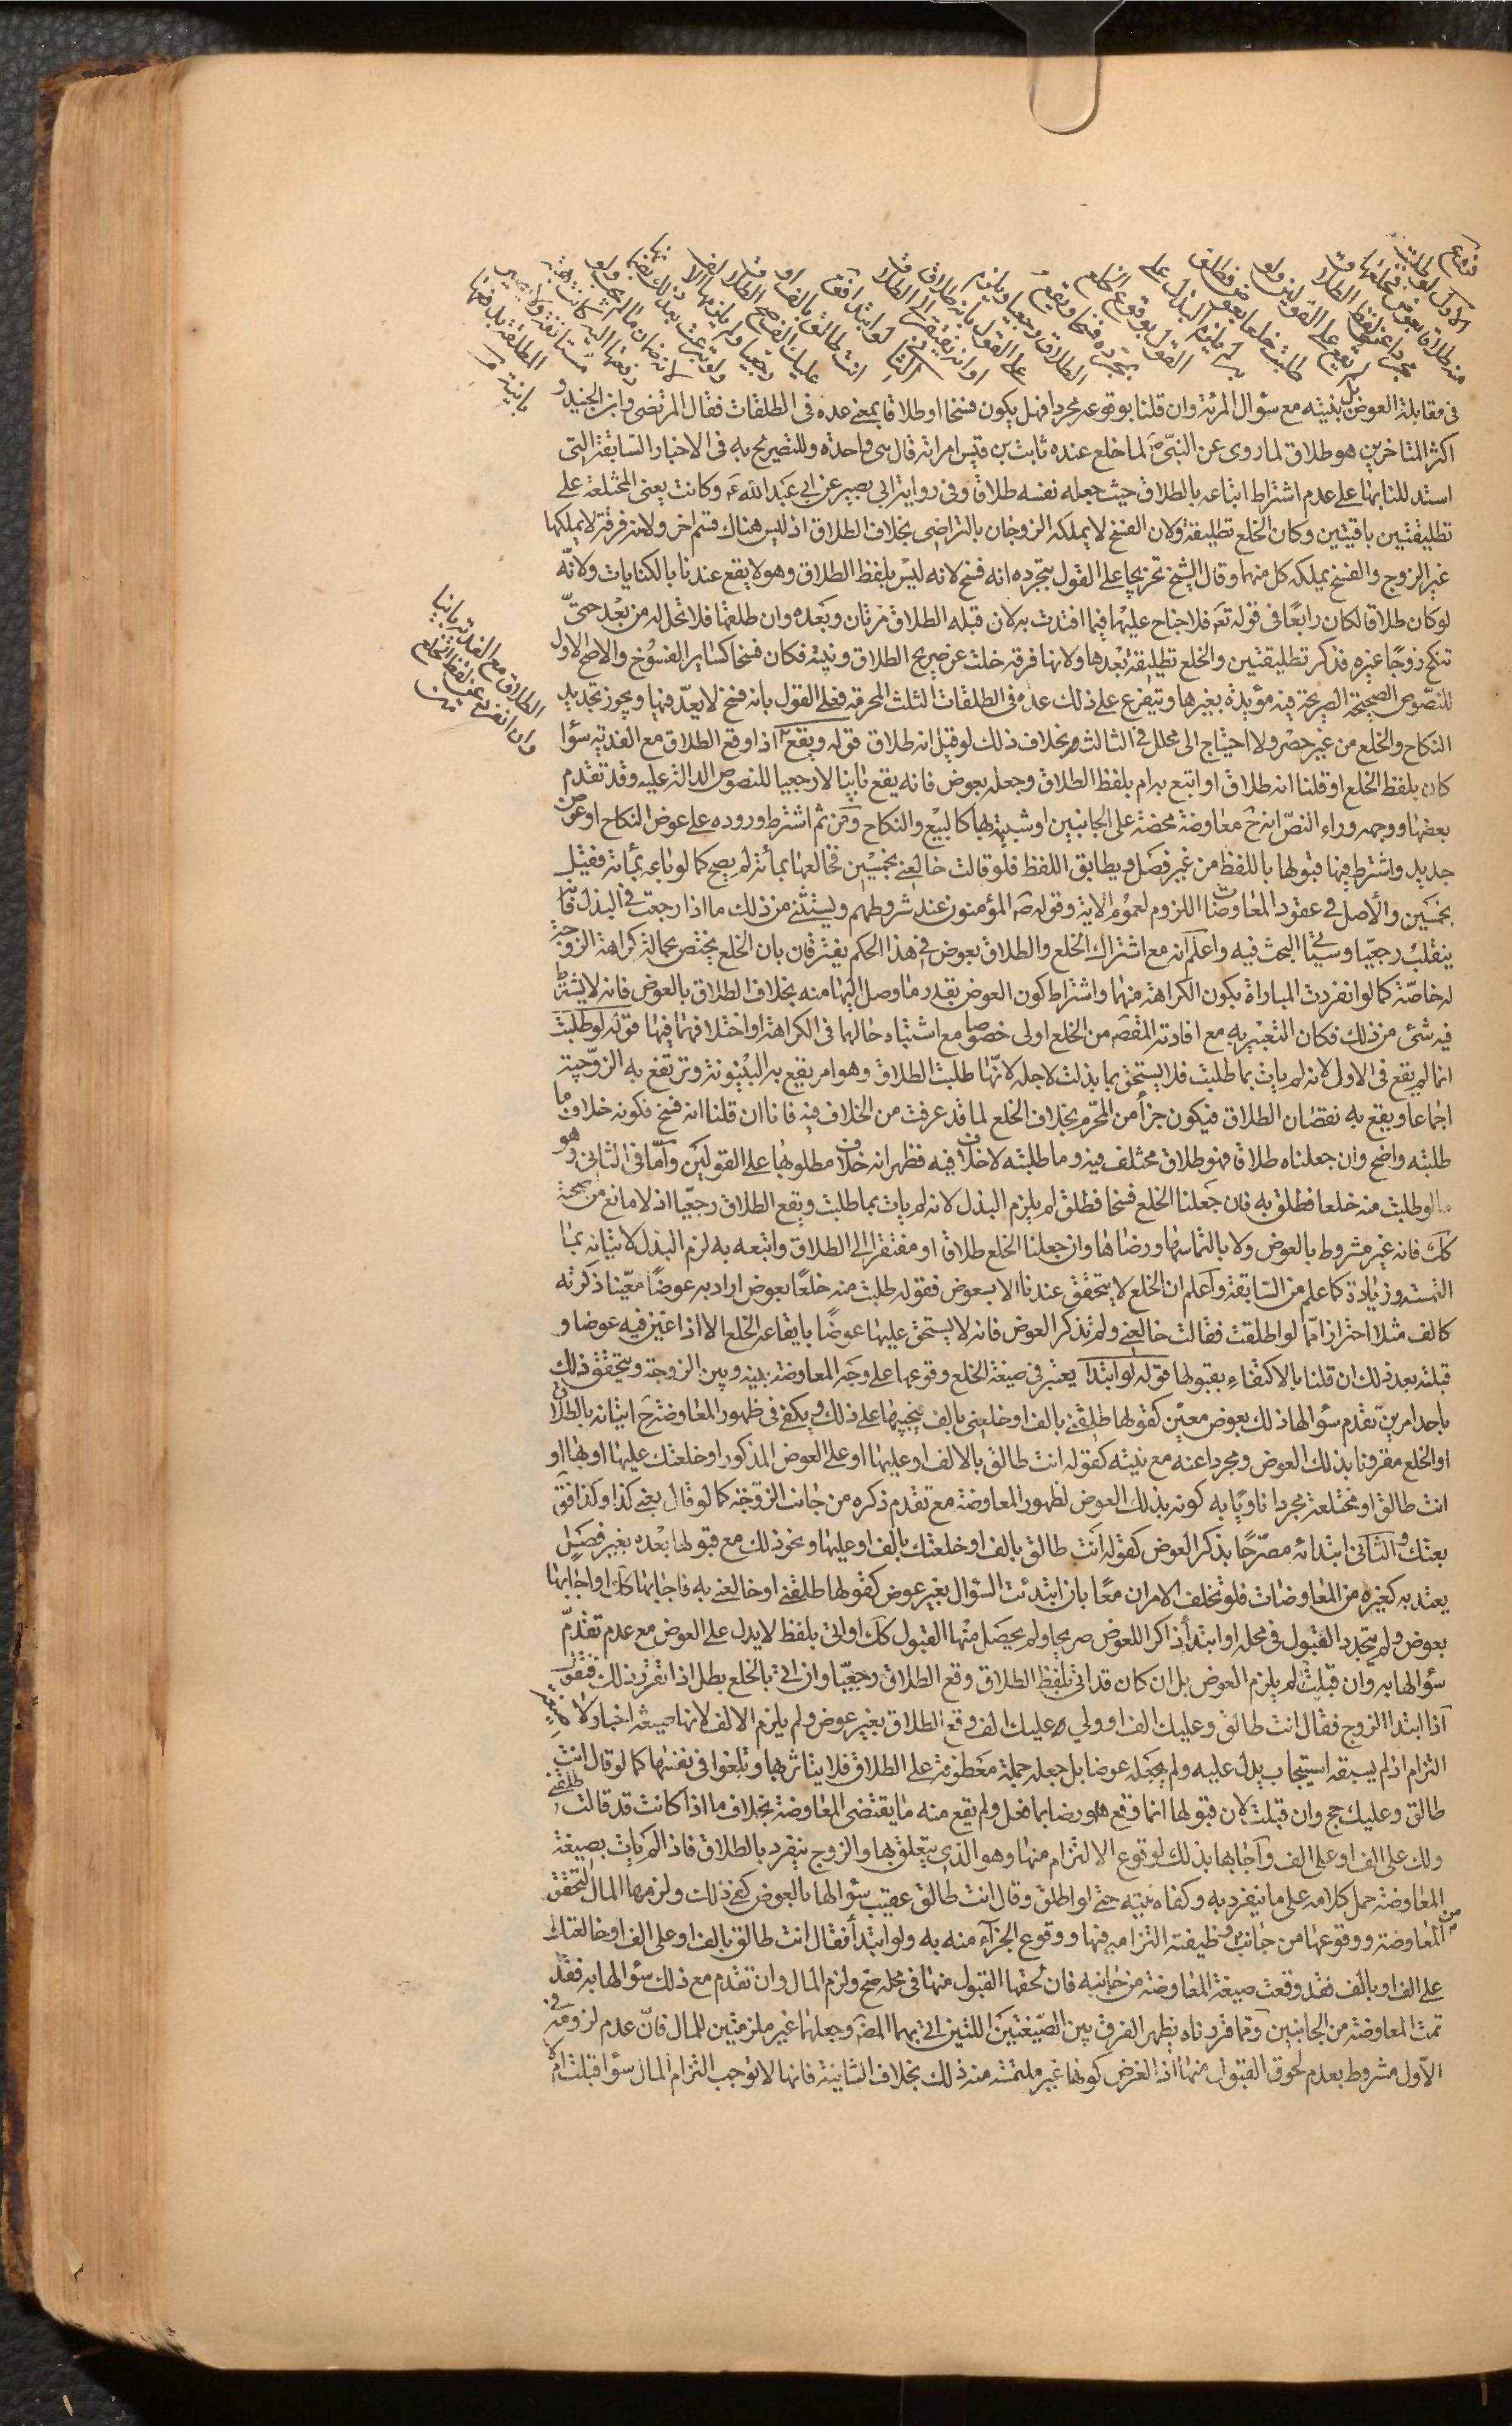 فروع
الاول لو طلبت
منه طلاقا بعوض فخلعها
مجردا عن لفظ الطلاق
لم يقع على القولين ولو
طلبت خلعا بعوض فطلق
به لم يلزم البذل على
القول بوقوع الخلع
بمجرده فسخا ويقع
الطلاق رجعيا ويلزم
على القول بانه طلاق
او انه يفتقر الى الطلاق
الثاني لو ابتدا فقال
انت طالق بالف او
عليك الف صح الطلاق
رجعيا ولم يلزمها الالف
ولو تبرعت بعد ذلك بضمانها
لانه ضمان ما لم يجب ولو
دفعتها اليه كانت هبة
مستانفة ولا تصير
المطلقة بدفعها
باينة
الطلاق مع الفدية باينا
وان انفرد عن لفظ الخلع
في مقابلة العوض بنيته مع سؤال المرئة وان قلنا بوقوعه مجردا فهل يكون فسخا او طلاقا بمعنى عده في الطلقات فقال المرتضى وابن الجنيد و
اكثر المتاخرين هو طلاق لما روى عن النبي ص لما خلع عنده ثابت بن قيس امراته قال هي واحدة وللتصريح به في الاخبار السابقة التي
استدللنا بها على عدم اشتراط اتباعه بالطلاق حيث جعله نفسه طلاقا وفي رواية ابي بصير عن ابي عبد الله ع وكانت يعني المختلعة على
تطليقتين باقيتين وكان الخلع تطليقة ولان الفسخ لا يملكه الزوجان بالتراضي بخلاف الطلاق اذ ليس هناك قسم اخر ولانه فرقة لا يملكها
غير الزوج والفسخ يملكه كل منهما وقال الشيخ تخريجا على القول بتجرده انه فسخ لانه ليس بلفظ الطلاق وهو لا يقع عندنا بالكنايات ولانه
لو كان طلاقا لكان رابعا في قوله تع فلا جناح عليهما فيما افتدت به لان قبله الطلاق مرتان وبعده وان طلقها فلا تحل له من بعد حتى
تنكح زوجا غيره فذكر تطليقتين والخلع تطليقة بعدها ولانها فرقة خلت عن صريح الطلاق ونيته فكان فسخا كساير الفسوخ والاصح الاول
للنصوص الصحيحة الصريحة فيه مؤيدة بغيرها ويتفرع على ذلك عده في الطلقات الثلث المحرمة فعلى القول بانه فسخ لا يعد فيها ويجوز تجديد
النكاح والخلع من غير حصر ولا احتياج الى محلل في الثالث بخلاف ذلك لو قيل انه طلاق قوله ويقع اذا وقع الطلاق مع الفدية سؤا
كان بلفظ الخلع او قلنا انه طلاق او اتبع به ام بلفظ الطلاق وجعله بعوض فانه يقع باينا لا رجعيا للنصوص الدالة عليه وقد تقدم
بعضها ووجهه وراء النص انه ح معاوضة محضة على الجانبين او شبيهة بها كالبيع والنكاح ومن ثم اشترط وروده على عوض النكاح او عوض
جديد واشترط فيها قبولها باللفظ من غير فصل ويطابق اللفظ فلو قالت خالعني بخمسين فخالعها بمأة لم يصح كما لو باعه بمأة فقبل
بخمسين والاصل في عقود المعاوضات اللزوم لعموم الاية وقوله ص المؤمنون عند شروطهم ويستثنى من ذلك ما اذا رجعت في البذل فانه
ينقلب رجعيا وسيأتي البحث فيه واعلم انه مع اشتراك الخلع والطلاق بعوض في هذا الحكم يفترقان بان الخلع يختص بحالة كراهة الزوجة
له خاصة كما لو انفردت المباراة بكون الكراهة منهما واشتراط كون العوض بقدر ما وصل اليها منه بخلاف الطلاق بالعوض فانه لا يشترط
فيه شئ من ذلك فكان التعبير به مع افادته المقصد من الخلع اولى خصوصا مع اشتباه حالهما في الكراهة او اختلافهما فيها قوله لو طلبت
انما لم يقع في الاول لانه لم يات بما طلبت فلا يستحق ما بذلت لاجله لانها طلبت الطلاق وهو امر يقع به البينونة وترتفع به الزوجية
اجماعا ويقع به نقصان الطلاق فيكون جزأ من المحرم بخلاف الخلع لما قد عرفت من الخلاف فيه فانا ان قلنا انه فسخ فكونه خلاف ما
طلبته واضح وان جعلناه طلاقا فهو طلاق مختلف فيه وما طلبته لا خلاف فيه فظهر انه خلاف مطلوبها على القولين واما في الثاني وهو
ما لو طلبت منه خلعا فطلق به فان جعلنا الخلع فسخا فطلق لم يلزم البذل لانه لم يات بما طلبت ويقع الطلاق رجعيا اذ لا مانع من صحته
كك فانه غير مشروط بالعوض ولا بالتماسها ورضاها وان جعلنا الخلع طلاقا او مفتقرا الى الطلاق واتبعه به لزم البذل لاتيانه بما
التمسته وزيادة كما علم من السابقة واعلم ان الخلع لا يتحقق عندنا الا بعوض فقوله طلبت منه خلعا بعوض اراد به عوضا معينا ذكرته
كالف مثلا احترازا مما لو اطلقت فقالت خالعني ولم تذكر العوض فانه لا يستحق عليها عوضا بايقاعه الخلع الا اذا عين فيه عوضا و
قبلته بعد ذلك ان قلنا بالاكتفاء بقبولها قوله لو ابتدا يعتبر في صيغة الخلع وقوعها على وجه المعاوضة بينه وبين الزوجة ويتحقق ذلك
باحد امرين تقدم سؤالها ذلك بعوض معين كقولها طلقني بالف او خلعني بالف فيجيبها على ذلك ويكفي في ظهور المعاوضة ح اتيانه بالطلاق
او الخلع مقرونا بذلك العوض ومجردا عنه مع نيته كقوله انت طالق بالالف او عليها او على العوض المذكور او خلعتك عليها او بها او
انت طالق او مختلعة مجردا ناويا به كونه بذلك العوض لظهور المعاوضة مع تقدم ذكره من جانب الزوجة كما لو قال بعني كذا وكذا فق
بعتك والثاني ابتدائه مصرحا بذكر العوض كقوله انت طالق بالف او خلعتك بالف او عليها ونحو ذلك مع قبولها بعده بغير فصل
يعتد به كغيره من المعاوضات فلو تخلف الامران معا بان ابتدئت السؤال بغير عوض كقولها طلقني او خالعني به فاجابها كك او اجابها
بعوض ولم يتجدد القبول في محله او ابتدأ ذاكرا للعوض صريحا ولم يحصل منها القبول كك او اتى بلفظ لا يدل على العوض مع عدم تقدم
سؤالها به وان قبلت لم يلزم العوض بل ان كان قد اتى بلفظ الطلاق وقع الطلاق رجعيا وان اتى بالخلع بطل اذا تقرر ذلك فنقول
اذا ابتدا الزوج فقال انت طالق وعليك الف او ولي عليك الف وقع الطلاق بغير عوض ولم يلزم الالف لانها صيغة اخبار لا صيغة
التزام اذ لم يسبقه استيجاب يدل عليه ولم يجعله عوضا بل جعله جملة معطوفة على الطلاق فلا يتاثر بها وتلغوا في نفسها كما لو قال انت
طالق وعليك حج وان قبلت لان قبولها انما وقع رضا بما فعل ولم يقع منه ما يقتضي المعاوضة بخلاف ما اذا كانت قد قالت طلقني
ولك على الف او على الف واجابها بذلك لوقوع الالتزام منها وهو الذي يتعلق بها والزوج ينفرد بالطلاق فاذا لم يات بصيغة
المعاوضة حمل كلامه على ما ينفرد به وكفاه نيته حتى لو اطلق وقال انت طالق عقيب سؤالها بالعوض كفى ذلك ولزمها المال لتحقق
المعاوضة ووقوعها من جانب من وظيفته التزامه فيها ووقوع الجزآء منه به ولو ابتدأ فقال انت طالق بالف او على الف او خالعتك
على الف او بالف فقد وقعت صيغة المعاوضة من جانبه فان لحقها القبول منها في محله صح ولزم المال وان تقدم مع ذلك سؤالها به فقد
تمت المعاوضة من الجانبين وبما قررناه يظهر الفرق بين الصيغتين اللتين اتى بهما المص وجعلهما غير ملزمتين للمال فان عدم لزومه في
الاول مشروط بعدم لحوق القبول منها اذ الغرض كونها غير ملتمسة منه ذلك بخلاف الثانية فانها لا توجب التزام المال سؤا قبلت ام لا